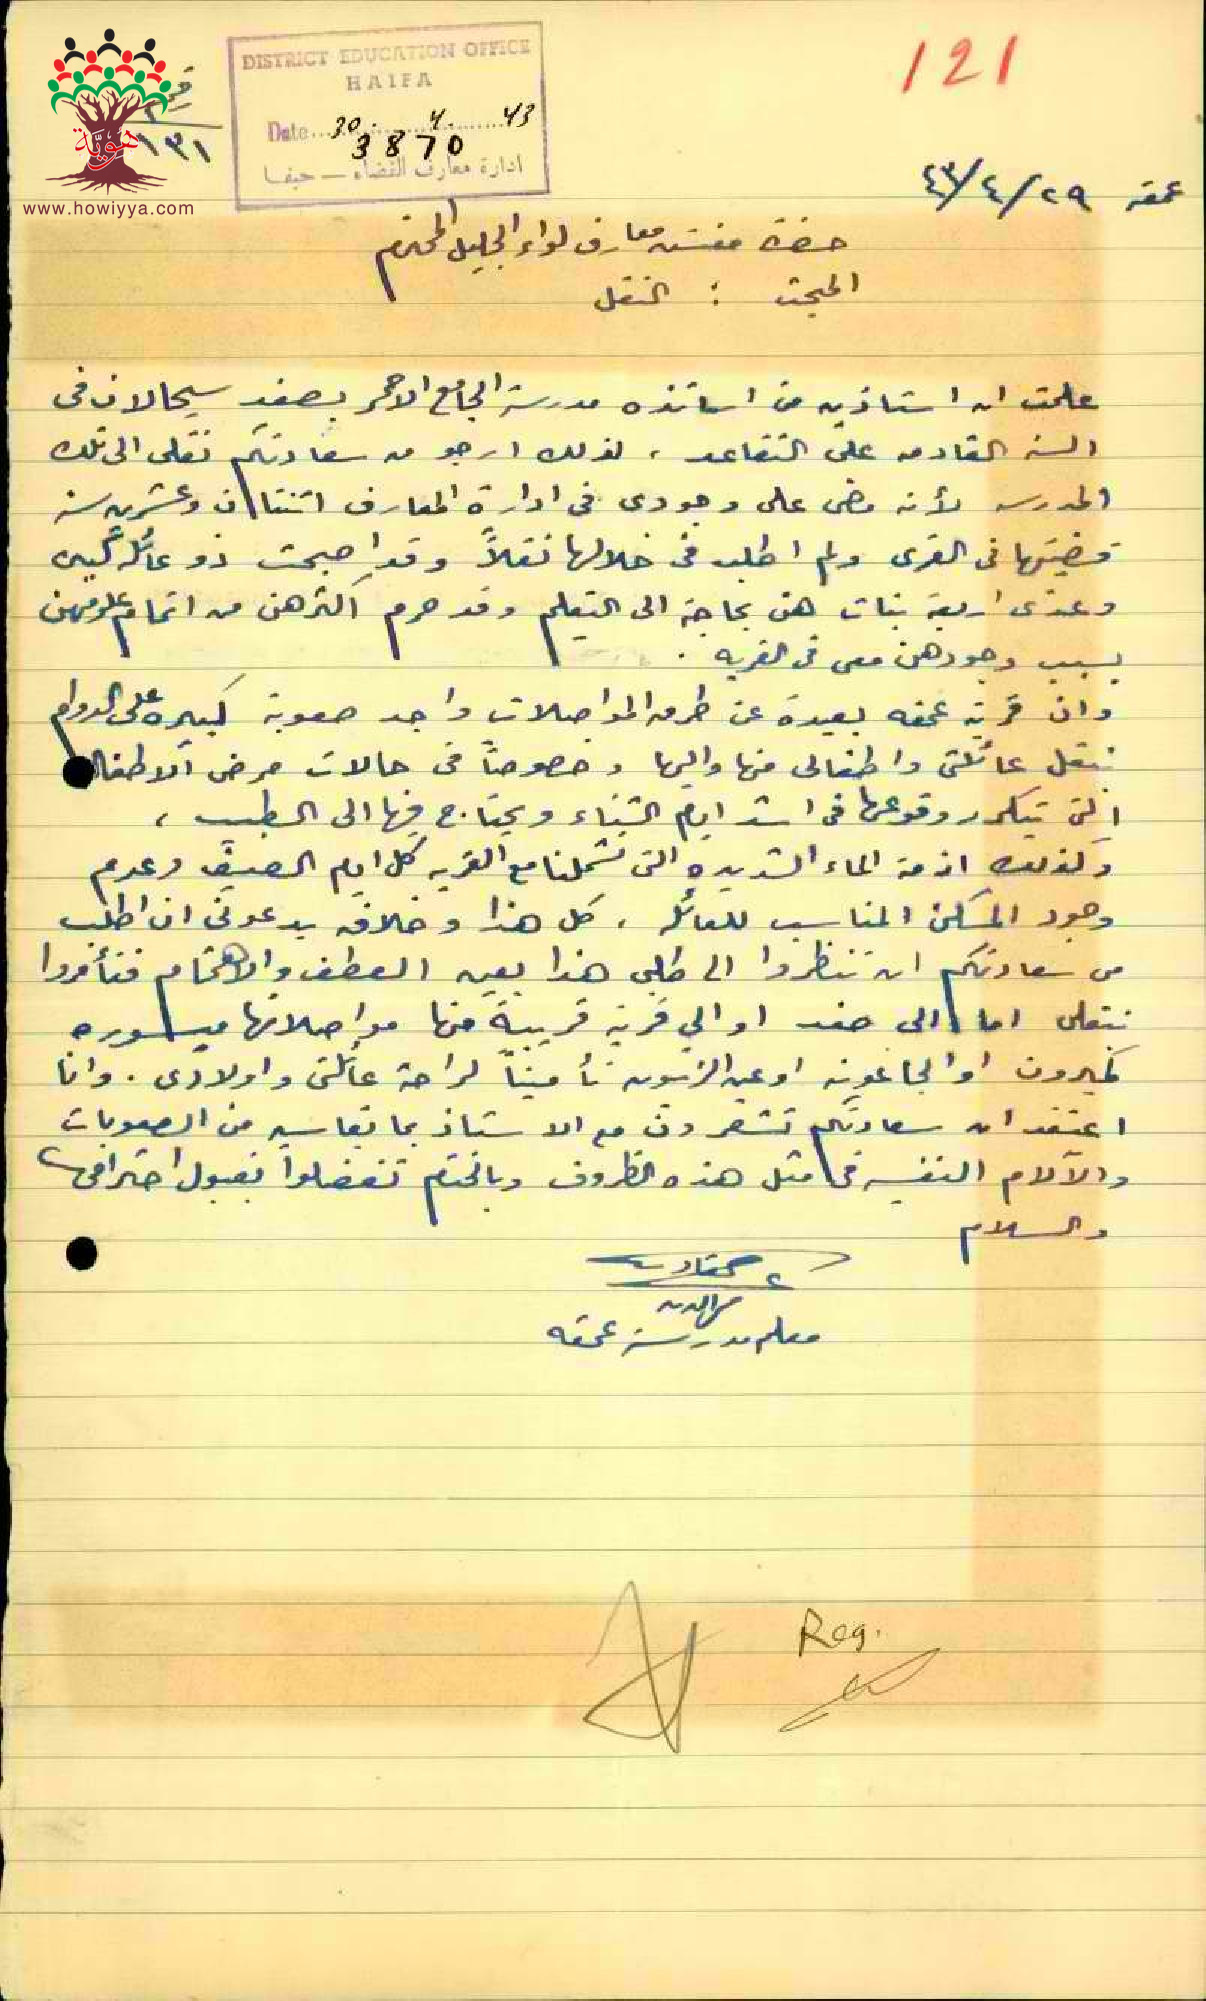 121
DISTRICT EDUCATION OFFICE
HAIFA
Date...30. 4. 43
3870
ادارة معارف القضاء — حيفا
١٣١
هوية
www.howiyya.com
عمقه ٢٩/٤/٤٣
حضرة مفتش معارف لواء الجليل المحترم
المبحث : النقل
علمت ان استاذين من اساتذه مدرسة الجامع الاحمر بصفد سيحالان في
السنه القادمه على التقاعد ، لذلك ارجو من سعادتكم نقلي الى تلك
المدرسه لأنه مضى على وجودي في ادارة المعارف اثنتان وعشرين سنه
قضيتها في القرى ولم اطلب في خلالها نقلاً وقد اصبحت ذو عائله كبيره
وعندي اربعة بنات هن بحاجة الى التعلم وقد حرم اكثرهن من اتمام علومهن
بسبب وجودهن معي في القريه .
وان قرية عمقه بعيدة عن طرق المواصلات واجد صعوبة كبيرة على الدوام
بنقل عائلتي واطفالي منها واليها وخصوصاً في حالات مرض الاطفال
التي تتكرر وقوعها في اشد ايام الشتاء ويحتاج فيها الى الطبيب ،
وكذلك ازمة الماء الشديده التي تشملنا مع القريه كل ايام الصيف وعدم
وجود المسكن المناسب للعائله ، كل هذا وخلافه يدعوني ان اطلب
من سعادتكم ان تنظروا الى طلبي هذا بعين العطف والاهتمام فتأمروا
بنقلي اما الى صفد او الي قرية قريبة منها مواصلاتها ميسوره
كميرون او الجاعونه او عين الزيتون تأميناً لراحة عائلتي واولادي . وانا
اعتقد ان سعادتكم تشعرون مع الاستاذ بما يقاسيه من الصعوبات
والآلام النفسيه في مثل هذه الظروف وبالختم تفضلوا بقبول احترامي
والسلام
معلم مدرسة عمقه
Reg.